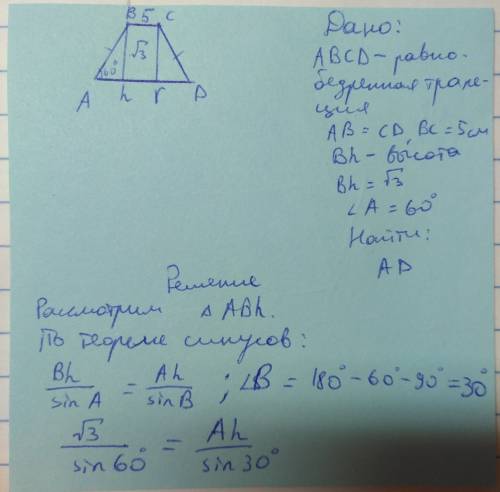 B 5 C
√3
60°
A h r D
Дано:
ABCD – равно-
бедренная трапе-
ция
AB = CD, BC = 5см
Bh – высота
Bh = √3
∠A = 60°
Найти:
AD
Решение
Рассмотрим △ ABh.
По теореме синусов:
Bh/sin A = Ah/sin B ; ∠B = 180° – 60° – 90° = 30°
√3/sin 60° = Ah/sin 30°